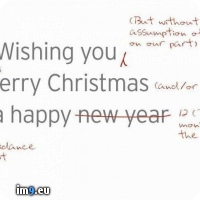 (But without
assumption o
on our part)
Wishing you
erry Christmas (and/or
a happy new year 12 (
mon
the
dance
t
img.eu